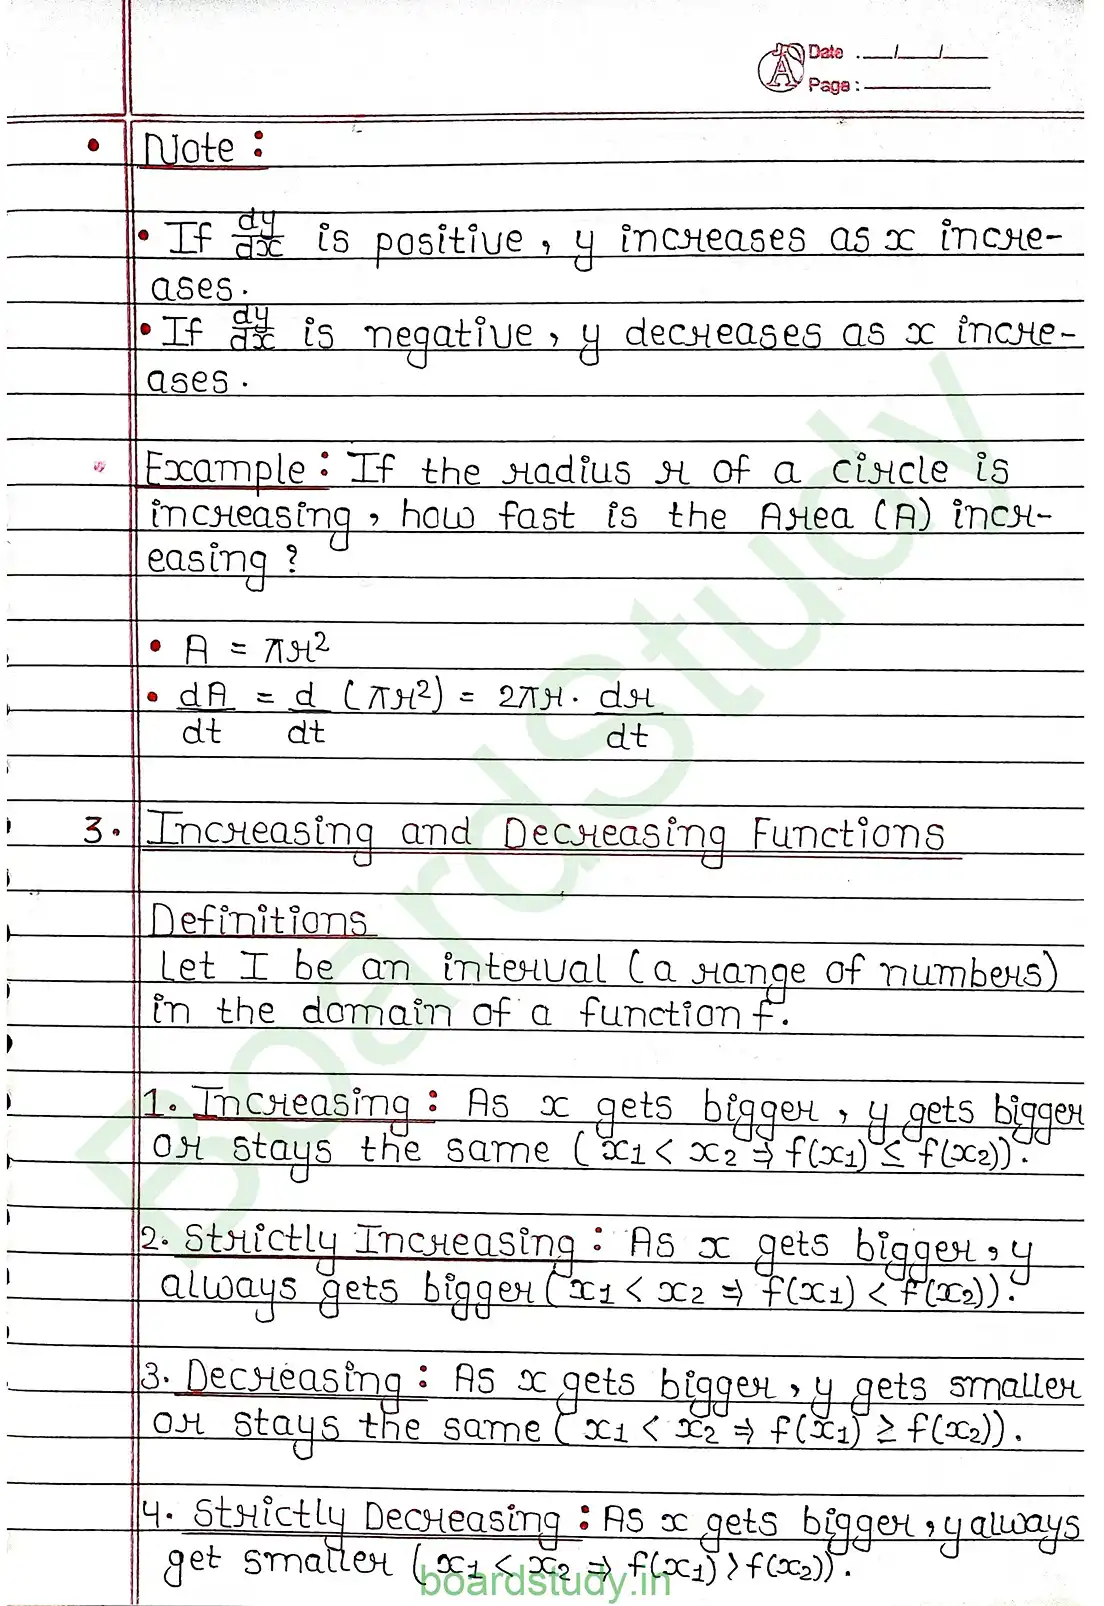 Date . __/__/__
Page :
Note :
• If dy/dx is positive, y increases as x incre-
ases.
• If dy/dx is negative, y decreases as x incre-
ases.
Example : If the radius r of a circle is
increasing, how fast is the Area (A) incr-
easing ?
• A = πr²
• dA/dt = d/dt (πr²) = 2πr. dr/dt
3. Increasing and Decreasing Functions
Definitions
Let I be an interval (a range of numbers)
in the domain of a function f.
1. Increasing : As x gets bigger, y gets bigger
or stays the same (x1 < x2 ⇒ f(x1) ≤ f(x2)).
2. Strictly Increasing : As x gets bigger, y
always gets bigger (x1 < x2 ⇒ f(x1) < f(x2)).
3. Decreasing : As x gets bigger, y gets smaller
or stays the same (x1 < x2 ⇒ f(x1) ≥ f(x2)).
4. Strictly Decreasing : As x gets bigger, y always
get smaller (x1 < x2 ⇒ f(x1) > f(x2)).
BoardStudy
boardstudy.in